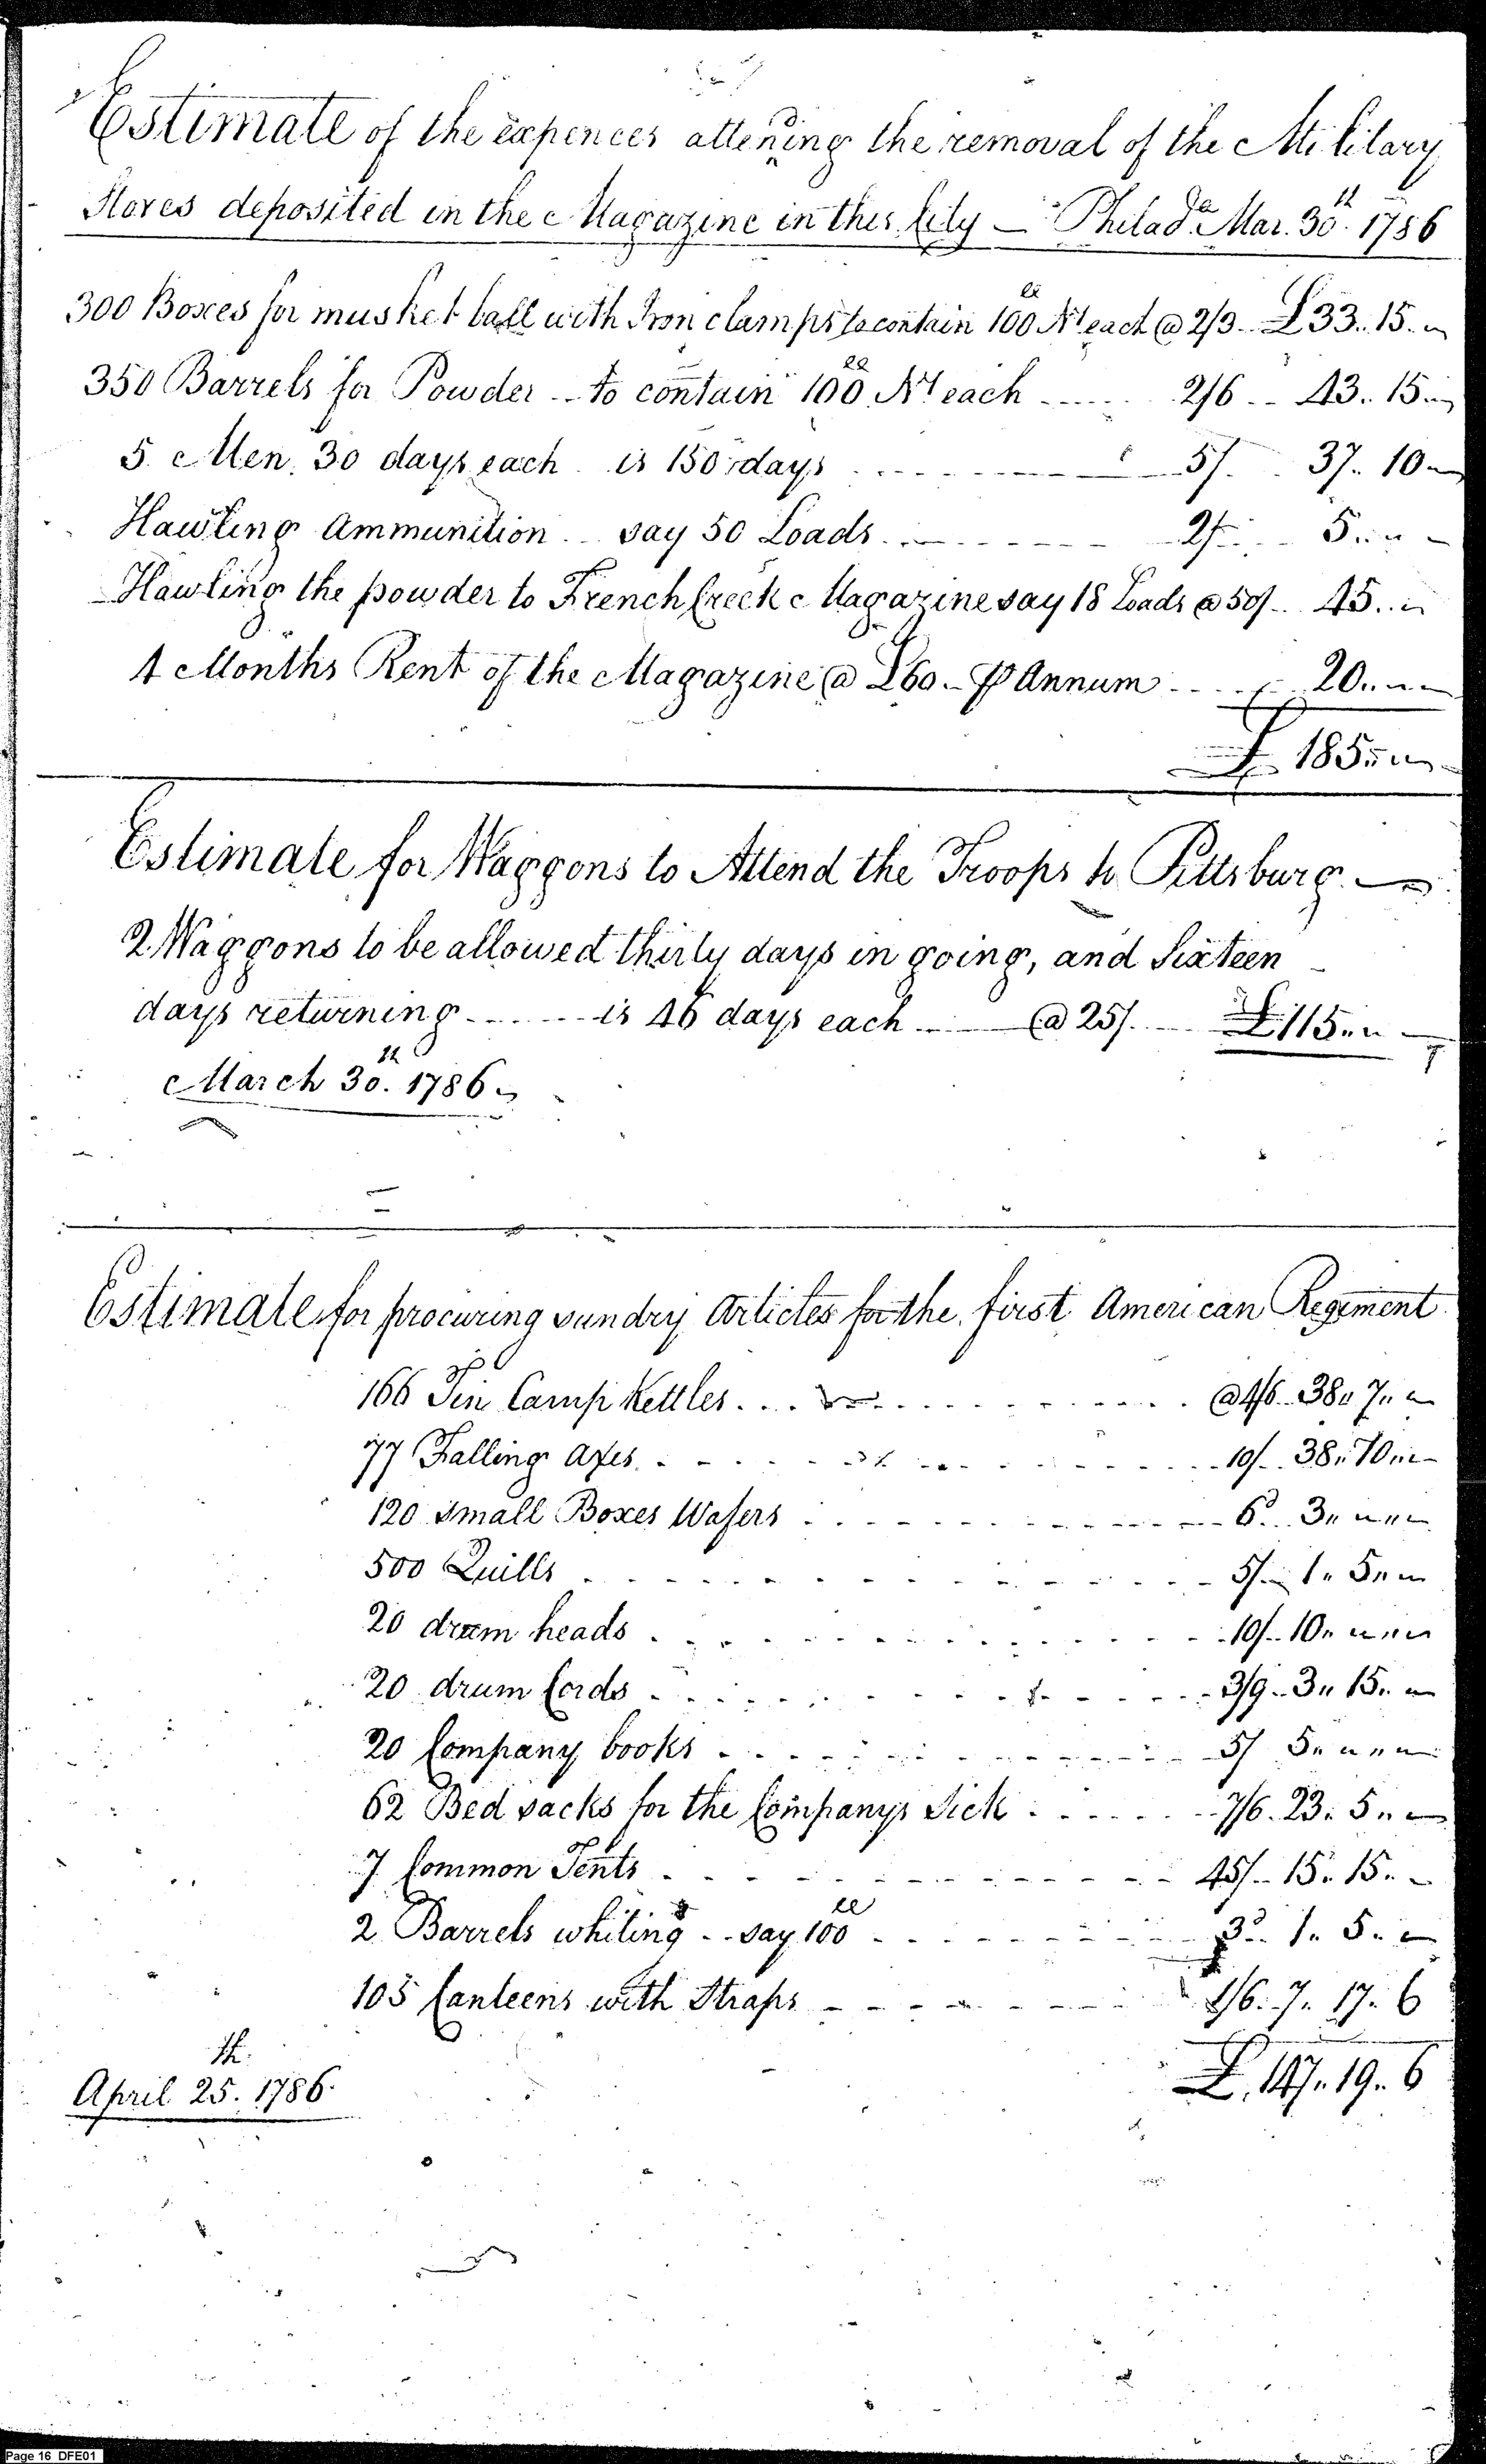 Estimate of the expences attending the removal of the Military
Stores deposited in the Magazine in this City — Philada. Mar. 30th. 1786
300 Boxes for musket ball with Iron clamps to contain 100 lb Nt each @ 2/3 .. £33..15.. "
350 Barrels for Powder .. to contain 100 lb Nt each ...... 2/6 .. 43..15.. "
5 Men, 30 days each is 150 days ........ 5/. 37..10 "
Hawling Ammunition .. say 50 Loads ........ 2/. 5.. " -
Hawling the powder to French Creek Magazine say 18 Loads @ 50/. 45.. "
4 Months Rent of the Magazine @ £60 - ⅌ Annum .... 20.. " "
£ 185.. " "
Estimate for Waggons to Attend the Troops to Pittsburg —
2 Waggons to be allowed thirty days in going, and Sixteen
days returning ...... is 46 days each ... @ 25/. ... £115.. " -
March 30th. 1786
Estimate for procuring sundry Articles for the first American Regiment
166 Tin Camp Kettles ........ @ 4/6 .. 38" 7" "
77 Falling axes ........ 10/. 38" 10" "
120 Small Boxes Wafers ........ 6d .. 3" " "
500 Quills ........ 5/. 1" 5" "
20 drum heads ........ 10/. 10" " "
20 drum Cords ........ 3/9 .. 3" 15" "
20 Company books ........ 5/ 5" " "
62 Bed sacks for the Companys Sick ........ 7/6 . 23" 5" "
7 Common Tents ........ 45/. 15" 15" -
2 Barrels whiting .. say 100 lb ........ 3d .. 1" 5" "
105 Canteens with Straps ........ 1/6 . 7" 17" 6
£. 147" 19" 6
April 25th. 1786.
Page 16 DFE01